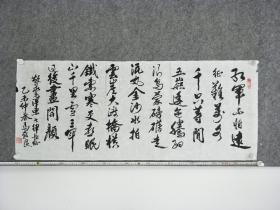 红軍不怕遠
征難万水
千山只等閒
五嶺逶迤騰細
浪烏蒙磅礴走
泥丸金沙水拍
雲崖暖大渡橋横
鐵索寒更喜岷
山千里雪三軍
過後盡開顏
毛澤東七律長征
乙未仲春